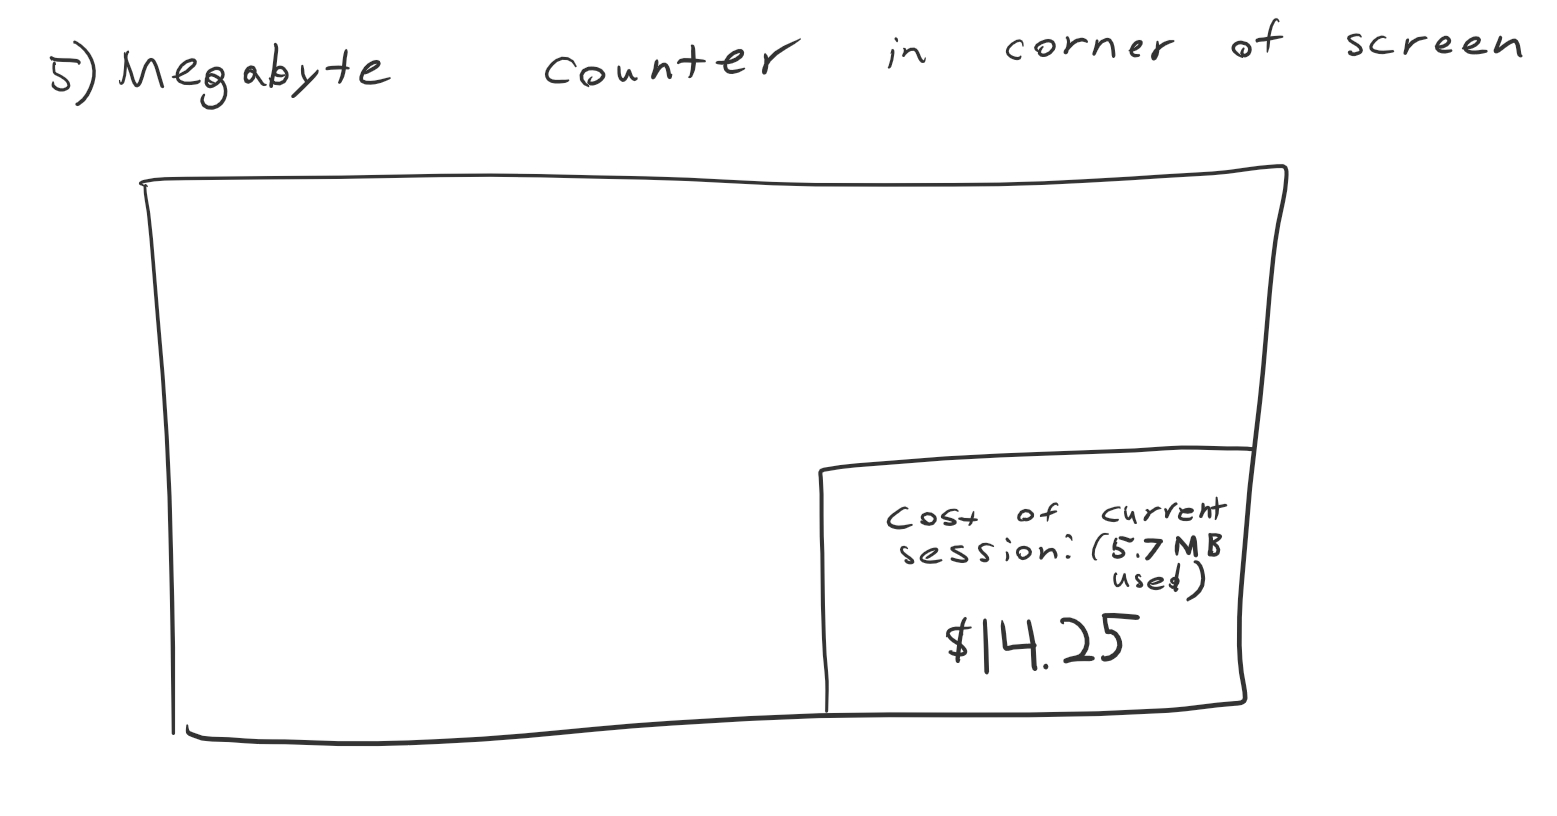 5) Megabyte counter in corner of screen
Cost of current
session: (5.7 MB
used)
$14.25